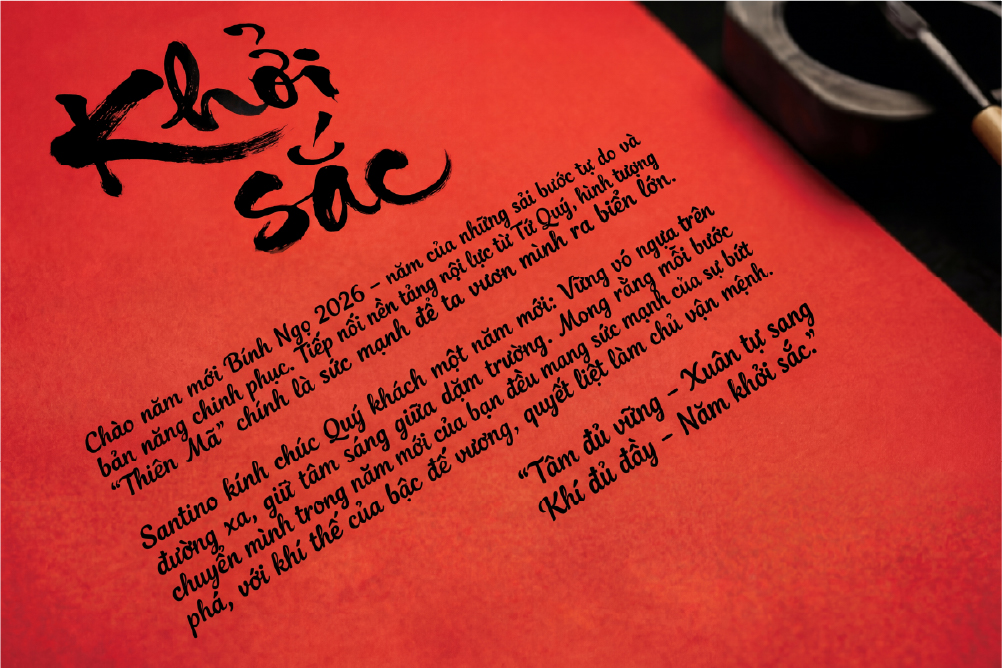 Khởi
sắc
Chào năm mới Bính Ngọ 2026 – năm của những sải bước tự do và
bản năng chinh phục. Tiếp nối nền tảng nội lực từ Tứ Quý, hình tượng
“Thiên Mã” chính là sức mạnh để ta vươn mình ra biển lớn.
Santino kính chúc Quý khách một năm mới: Vững vó ngựa trên
đường xa, giữ tâm sáng giữa dặm trường. Mong rằng mỗi bước
chuyển mình trong năm mới của bạn đều mang sức mạnh của sự bứt
phá, với khí thế của bậc đế vương, quyết liệt làm chủ vận mệnh.
“Tâm đủ vững – Xuân tự sang
Khí đủ đầy – Năm khởi sắc.”